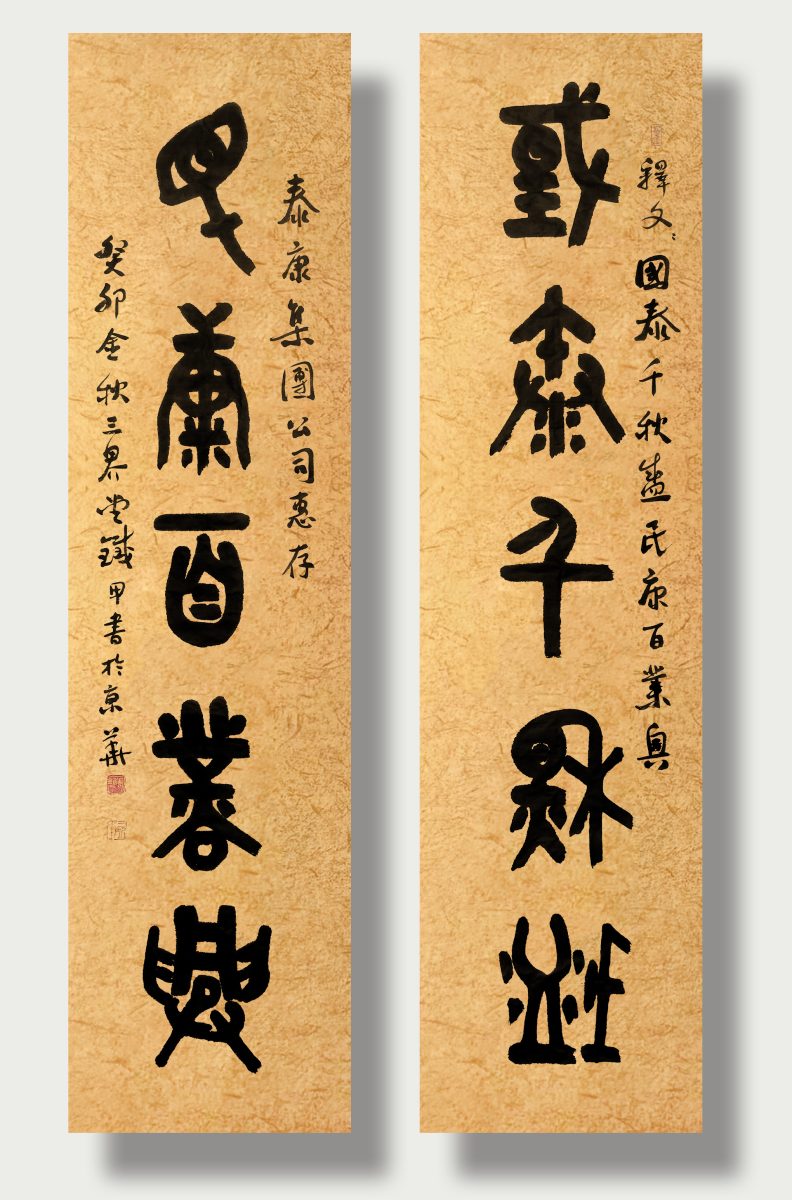 釋文：國泰千秋盛民康百業興
國泰千秋盛
泰康集團公司惠存
民康百業興
癸卯金秋三界堂鐵甲書於京華